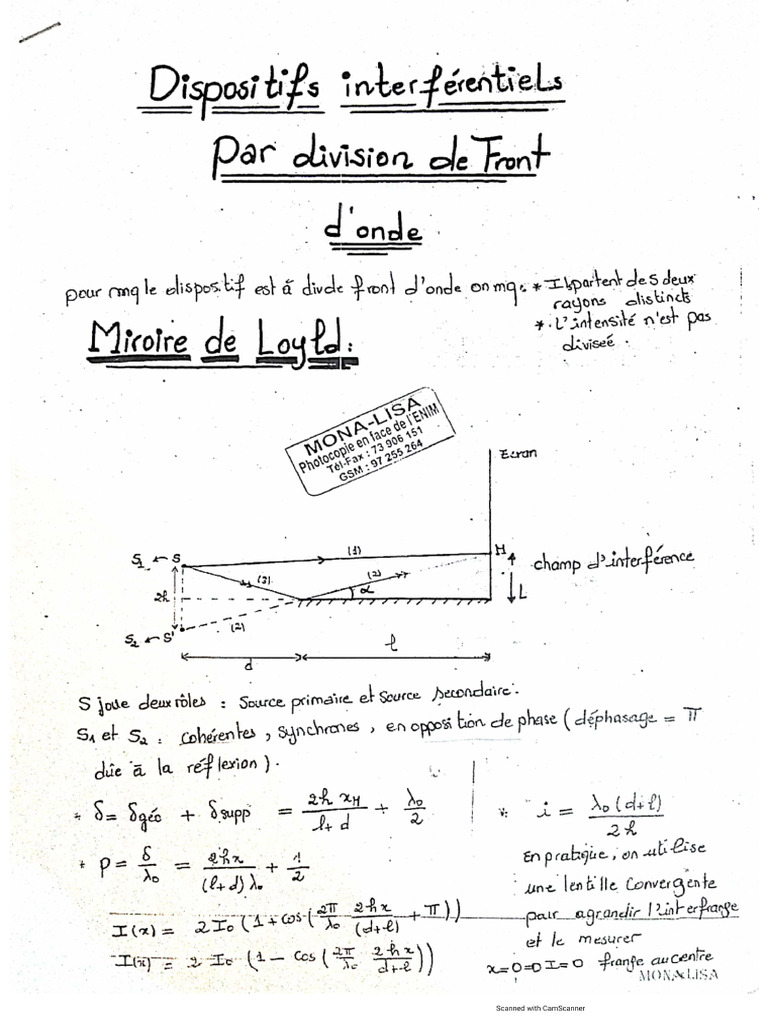 Dispositifs interférentiels
Par division de Front
d'onde
pour mq le dispositif est à div de front d'onde on mq: * Ils partent de S deux
rayons distincts
* L'intensité n'est pas
divisée.
Miroire de Loyld:
MONA-LISA
Photocopie en face de l'ENIM
Tél-Fax : 73 906 151
GSM : 97 255 264
Ecran
S1 ← S (1) H
champ d'interférence
(2) (2) α L
2h
S2 ← S' (2)
d l
S joue deux rôles : Source primaire et source secondaire.
S1 et S2 : cohérentes, synchrones, en opposition de phase (déphasage = π
dûe à la réflexion).
* δ = δgéo + δsupp = 2h xH / (l+d) + λ0/2
* i = λ0(d+l) / 2h
* P = δ/λ0 = 2hx / (l+d)λ0 + 1/2
En pratique, on utilise
une lentille convergente
pour agrandir l'interfrange
et le mesurer
I(x) = 2 I0 (1 + cos(2π/λ0 2hx/(d+l) + π))
I(x) = 2 I0 (1 - cos(2π/λ0 2hx/(d+l)))
x=0 ⇒ I=0 frange au centre
MONA LISA
Scanned with CamScanner